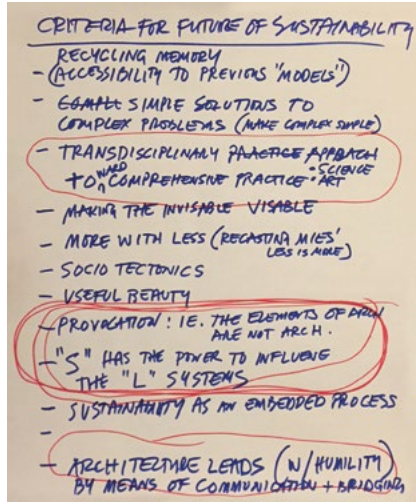 CRITERIA FOR FUTURE OF SUSTAINABILITY
RECYCLING MEMORY
- (ACCESSIBILITY TO PREVIOUS "MODELS")
- COMPL SIMPLE SOLUTIONS TO
COMPLEX PROBLEMS (MAKE COMPLEX SIMPLE)
- TRANSDISCIPLINARY PRACTICE APPROACH
TOWARD COMPREHENSIVE PRACTICE • SCIENCE
• ART
- MAKING THE INVISABLE VISABLE
- MORE WITH LESS (RECASTING MIES'
LESS IS MORE)
- SOCIO TECTONICS
- USEFUL BEAUTY
- PROVOCATION: IE. THE ELEMENTS OF ARCH
ARE NOT ARCH.
- "S" HAS THE POWER TO INFLUENCE
THE "L" SYSTEMS
- SUSTAINABILITY AS AN EMBEDDED PROCESS
-
- ARCHITECTURE LEADS (W/HUMILITY)
BY MEANS OF COMMUNICATION + BRIDGING